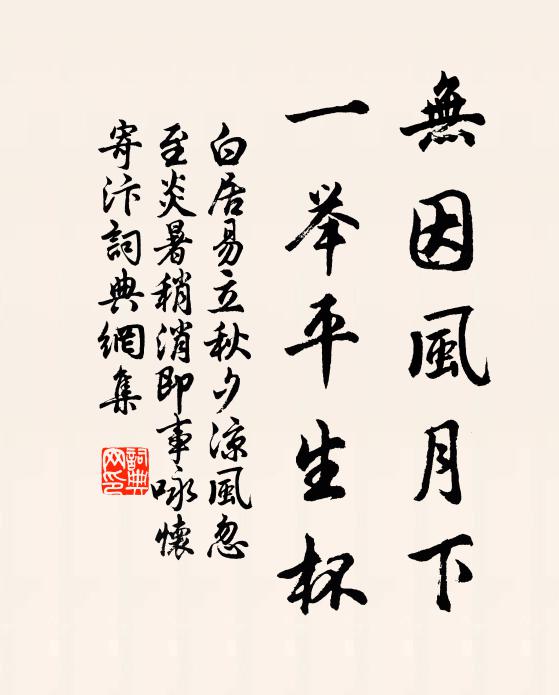 無因風月下
一举平生杯
白居易立秋夕涼風忽
至炎暑稍消即事咏懷
寄汴詞典網集
詞典网印